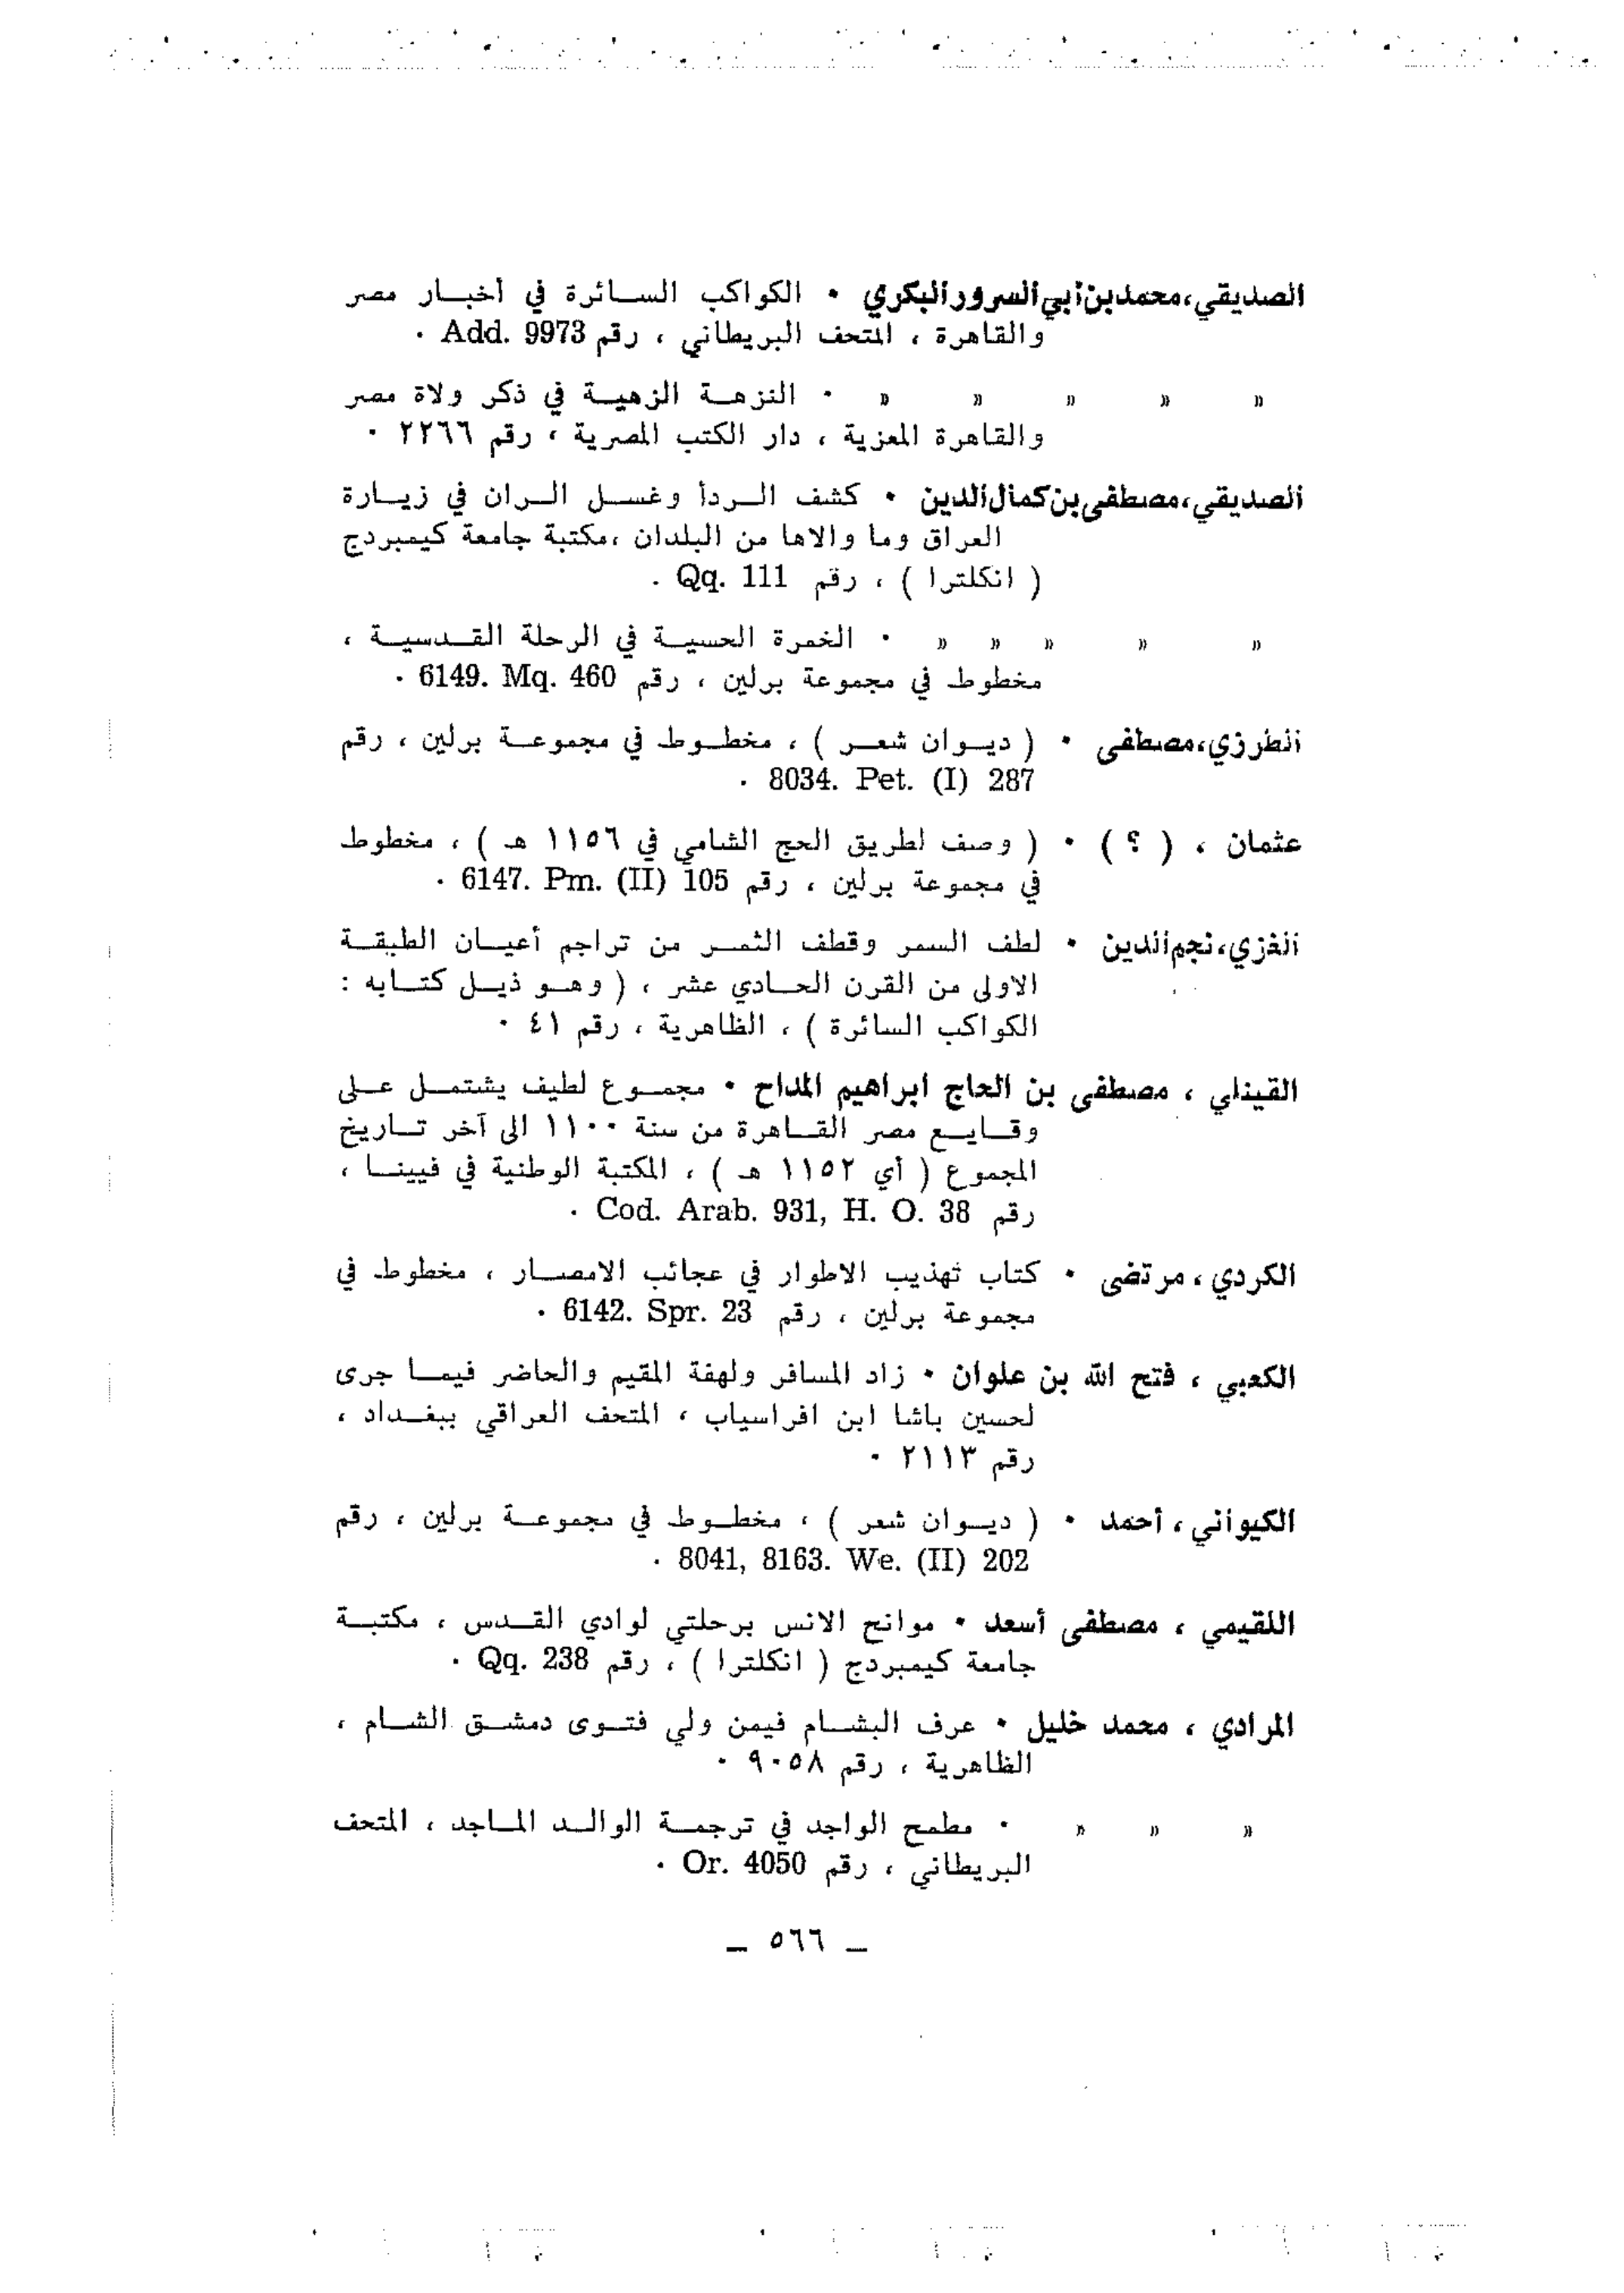 الصديقي، محمد بن أبي السرور البكري • الكواكب السائرة في أخبار مصر
والقاهرة ، المتحف البريطاني ، رقم Add. 9973 •
» » » » » • النزهة الزهية في ذكر ولاة مصر
والقاهرة المعزية ، دار الكتب المصرية ، رقم ٢٢٦٦ •
الصديقي، مصطفى بن كمال الدين • كشف الردأ وغسل الران في زيارة
العراق وما والاها من البلدان ، مكتبة جامعة كيمبردج
( انكلترا ) ، رقم Qq. 111 •
» » » » » • الخمرة الحسية في الرحلة القدسية ،
مخطوط في مجموعة برلين ، رقم 6149. Mq. 460 •
الطرزي، مصطفى • ( ديوان شعر ) ، مخطوط في مجموعة برلين ، رقم
8034. Pet. (I) 287 •
عثمان ، ( ؟ ) • ( وصف لطريق الحج الشامي في ١١٥٦ هـ ) ، مخطوط
في مجموعة برلين ، رقم 6147. Pm. (II) 105 •
الغزي، نجم الدين • لطف السمر وقطف الثمر من تراجم أعيان الطبقة
الاولى من القرن الحادي عشر ، ( وهو ذيل كتابه :
الكواكب السائرة ) ، الظاهرية ، رقم ٤١ •
القينلي ، مصطفى بن الحاج ابراهيم المداح • مجموع لطيف يشتمل على
وقايع مصر القاهرة من سنة ١١٠٠ الى آخر تاريخ
المجموع ( أي ١١٥٢ هـ ) ، المكتبة الوطنية في فيينا ،
رقم Cod. Arab. 931, H. O. 38 •
الكردي ، مرتضى • كتاب تهذيب الاطوار في عجائب الامصار ، مخطوط في
مجموعة برلين ، رقم 6142. Spr. 23 •
الكعبي ، فتح الله بن علوان • زاد المسافر ولهفة المقيم والحاضر فيما جرى
لحسين باشا ابن افراسياب ، المتحف العراقي ببغداد ،
رقم ٢١١٣ •
الكيواني ، أحمد • ( ديوان شعر ) ، مخطوط في مجموعة برلين ، رقم
8041, 8163. We. (II) 202 •
اللقيمي ، مصطفى أسعد • موانح الانس برحلتي لوادي القدس ، مكتبة
جامعة كيمبردج ( انكلترا ) ، رقم Qq. 238 •
المرادي ، محمد خليل • عرف البشام فيمن ولي فتوى دمشق الشام ،
الظاهرية ، رقم ٩٠٥٨ •
» » » • مطمح الواجد في ترجمة الوالد الماجد ، المتحف
البريطاني ، رقم Or. 4050 •
– ٥٦٦ –